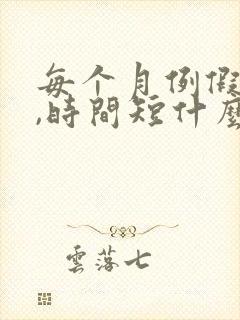 每个月例假
,時間短什麼
雲落七